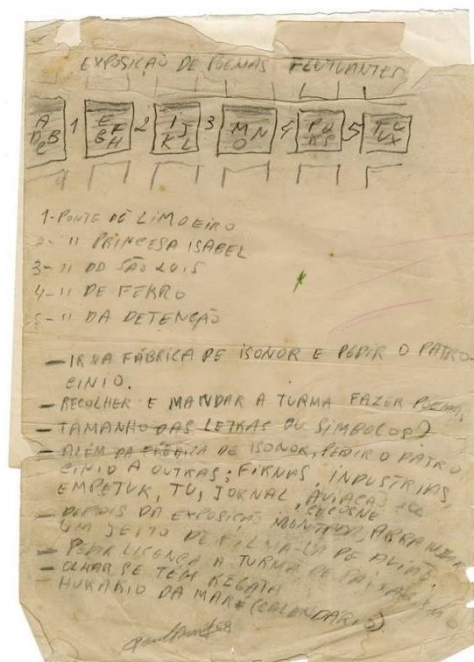 EXPOSIÇÃO DE POEMAS FLUTUANTES
A B C D 1 E F G H 2 I J K L 3 M N O 4 P Q R S 5 T U V X
1-PONTE DE LIMOEIRO
2- " PRINCESA ISABEL
3- " DO SÃO LUIS
4- " DE FERRO
5- " DA DETENÇÃO
— IR NA FÁBRICA DE ISONOR E PEDIR O PATRO-
CINIO.
— RECOLHER E MANDAR A TURMA FAZER POEMAS,
— TAMANHO DAS LETRAS OU SIMBOLOS)
— ALÉM DA FÁBRICA DE ISONOR, PEDIR O PATRO
CINIO A OUTRAS; FIRMAS, INDUSTRIAS,
EMPETUR, TV, JORNAL, AVIAÇÃO
— DEPOIS DA EXPOSIÇÃO MONTADA, ARRANJAR
UM JEITO DE FILMA-LA DE AVIÃO.
— PEDIR LICENÇA A TURMA DE PAISAGISMO
— OLHAR SE TEM REGATA
— HORÁRIO DA MARÉ (CALENDÁRIO)